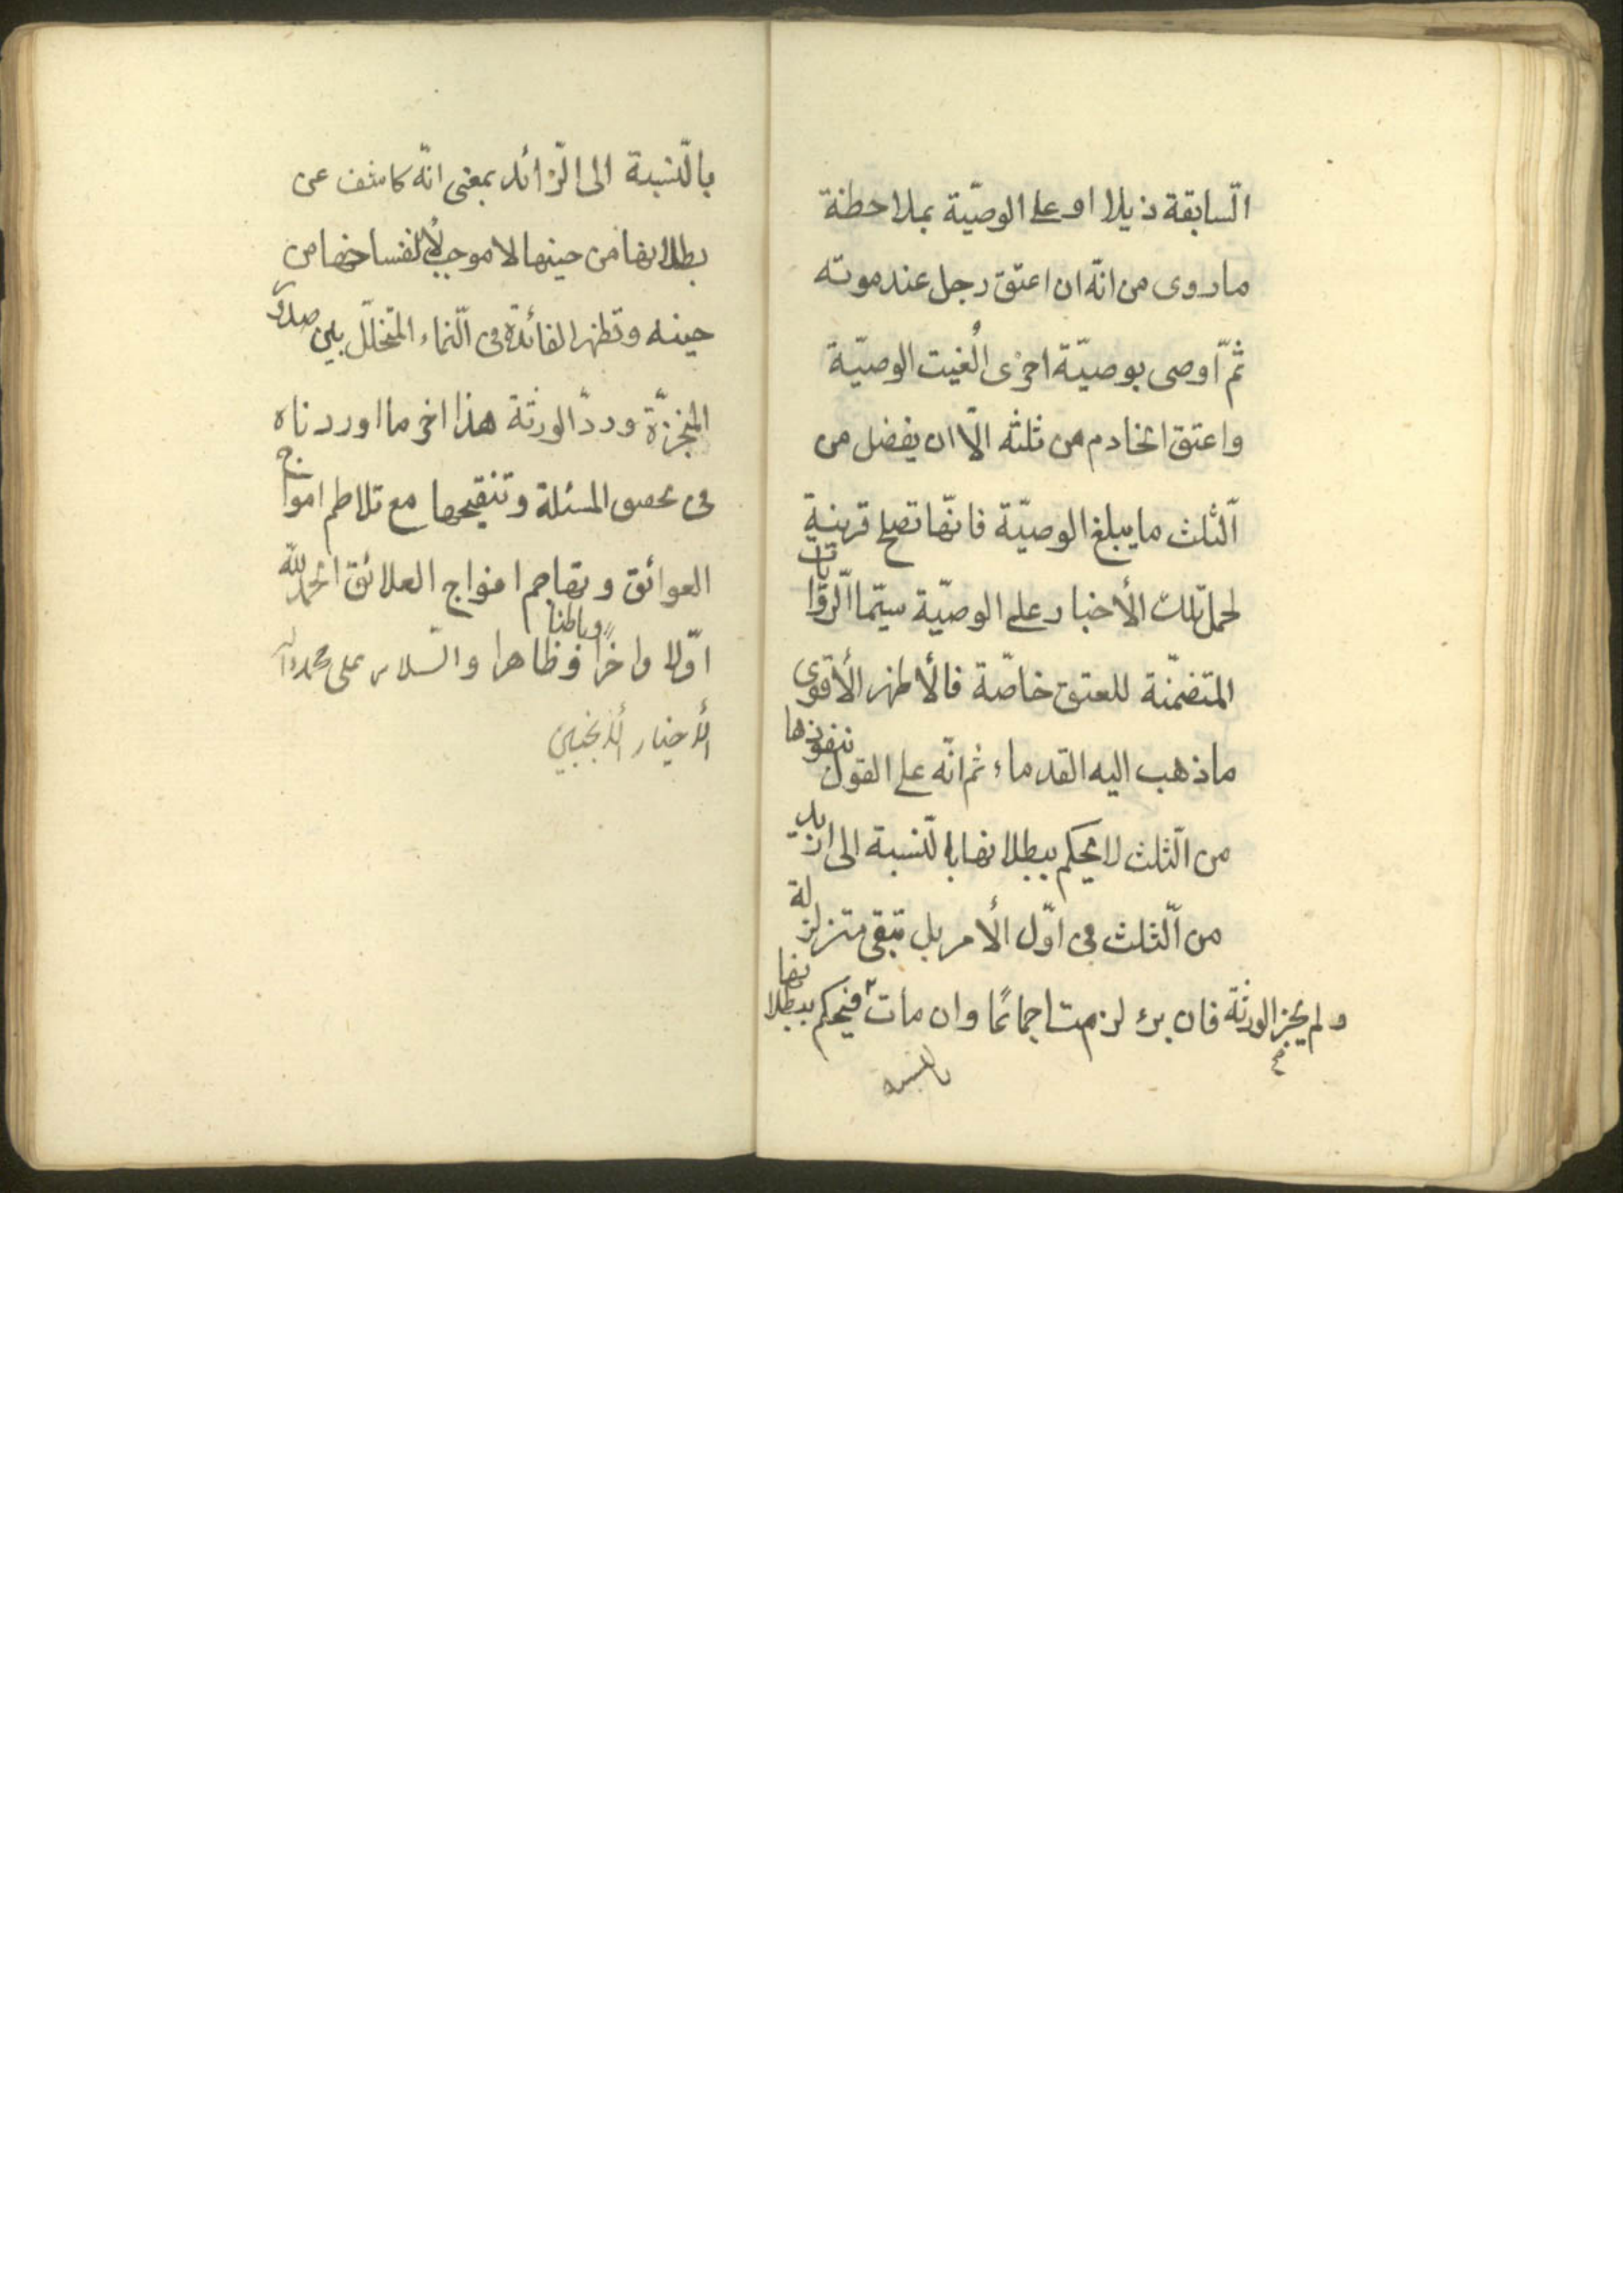 السّابقة ذيلا او على الوصيّة بملاحظة
ما روى من انّه ان اعتق رجل عند موته
ثمّ اوصى بوصيّة اخرى أُلغيت الوصيّة
واعتق الخادم من ثلثه الّا ان يفضل من
الثّلث ما يبلغ الوصيّة فانّها تصلح قرينة
لحمل تلك الأخبار على الوصيّة سيّما الرّوايات
المتضمّنة للعتق خاصّة فالأظهر الأقوى
ما ذهب اليه القدماء ثم انّه على القول بنفوذها
من الثّلث لا يحكم ببطلانها بالنّسبة الى ازيد
من الثّلث فى اوّل الأمر بل تبقى متزلزلة
فان برء لزمت اجماعًا وان مات ولم يجز الورثة فيحكم ببطلانها
بالنسبة
بالنّسبة الى الزّائد بمعنى انّه كاشف عن
بطلانها من حينها لا موجب لأنفساخها من
حينه وتظهر الفائدة فى النّماء المتخلّل بين صدور
المنجّزة وردّ الورثة هذا اخر ما اوردناه
فى تحقيق المسئلة وتنقيحها مع تلاطم امواج
العوائق وتهاجم افواج العلائق الحمد للّه
اوّلا واخرًا وظاهرا وباطنا والسّلام على محمد واله
الأخيار الأنجبين